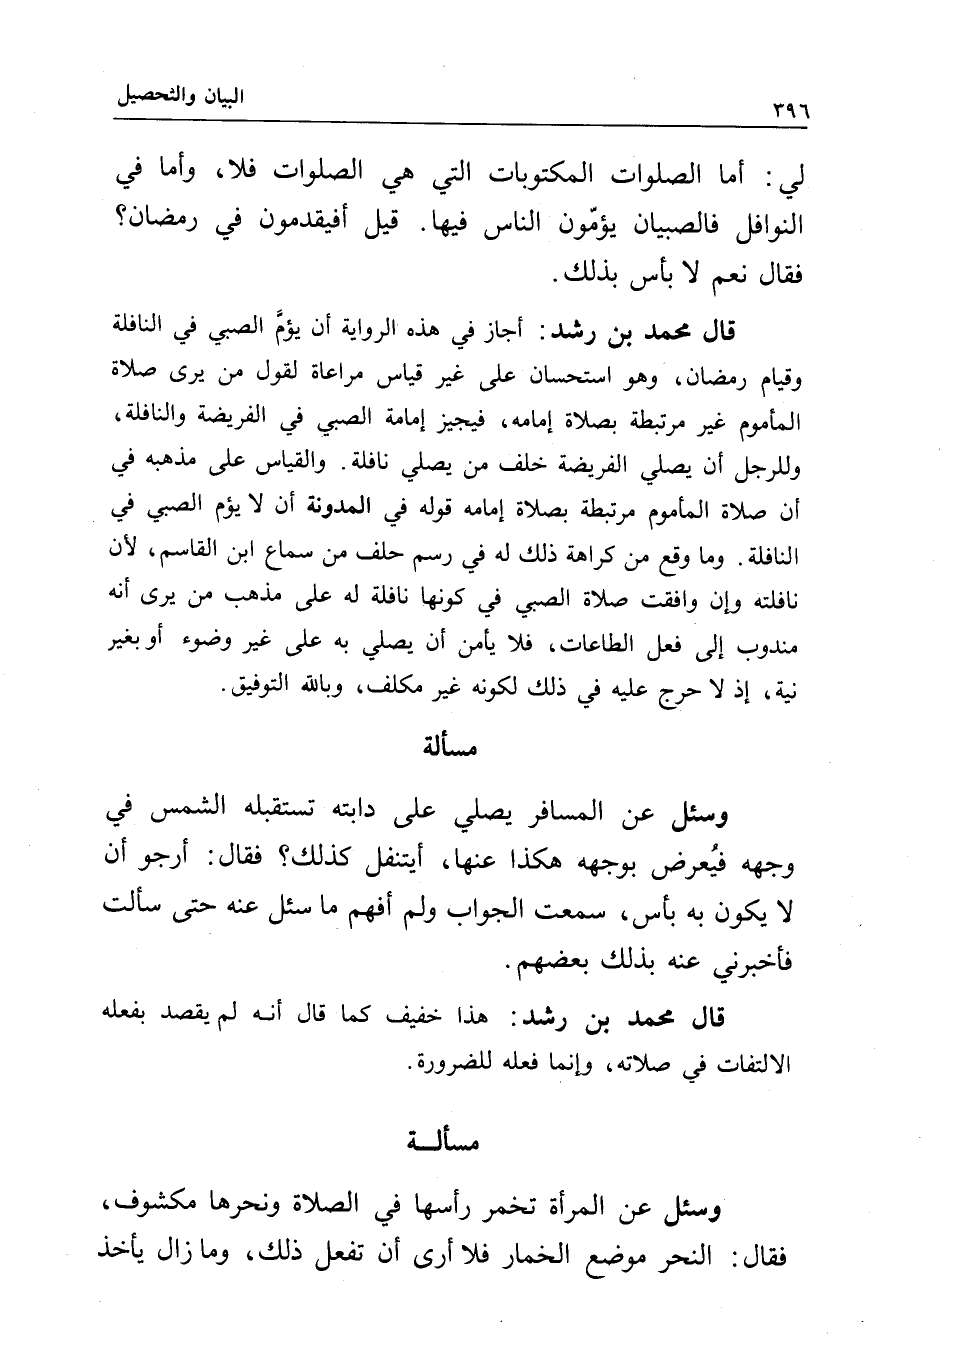 ٣٩٦ البيان والتحصيل
لي: أما الصلوات المكتوبات التي هي الصلوات فلا، وأما في
النوافل فالصبيان يؤمّون الناس فيها. قيل أفيقدمون في رمضان؟
فقال نعم لا بأس بذلك.
قال محمد بن رشد: أجاز في هذه الرواية أن يؤمَّ الصبي في النافلة
وقيام رمضان، وهو استحسان على غير قياس مراعاة لقول من يرى صلاة
المأموم غير مرتبطة بصلاة إمامه، فيجيز إمامة الصبي في الفريضة والنافلة،
وللرجل أن يصلي الفريضة خلف من يصلي نافلة. والقياس على مذهبه في
أن صلاة المأموم مرتبطة بصلاة إمامه قوله في المدونة أن لا يؤم الصبي في
النافلة. وما وقع من كراهة ذلك له في رسم حلف من سماع ابن القاسم، لأن
نافلته وإن وافقت صلاة الصبي في كونها نافلة له على مذهب من يرى أنه
مندوب إلى فعل الطاعات، فلا يأمن أن يصلي به على غير وضوء أو بغير
نية، إذ لا حرج عليه في ذلك لكونه غير مكلف، وبالله التوفيق.
مسألة
وسئل عن المسافر يصلي على دابته تستقبله الشمس في
وجهه فيُعرض بوجهه هكذا عنها، أيتنفل كذلك؟ فقال: أرجو أن
لا يكون به بأس، سمعت الجواب ولم أفهم ما سئل عنه حتى سألت
فأخبرني عنه بذلك بعضهم.
قال محمد بن رشد: هذا خفيف كما قال أنه لم يقصد بفعله
الالتفات في صلاته، وإنما فعله للضرورة.
مسألــة
وسئل عن المرأة تخمر رأسها في الصلاة ونحرها مكشوف،
فقال: النحر موضع الخمار فلا أرى أن تفعل ذلك، وما زال يأخذ